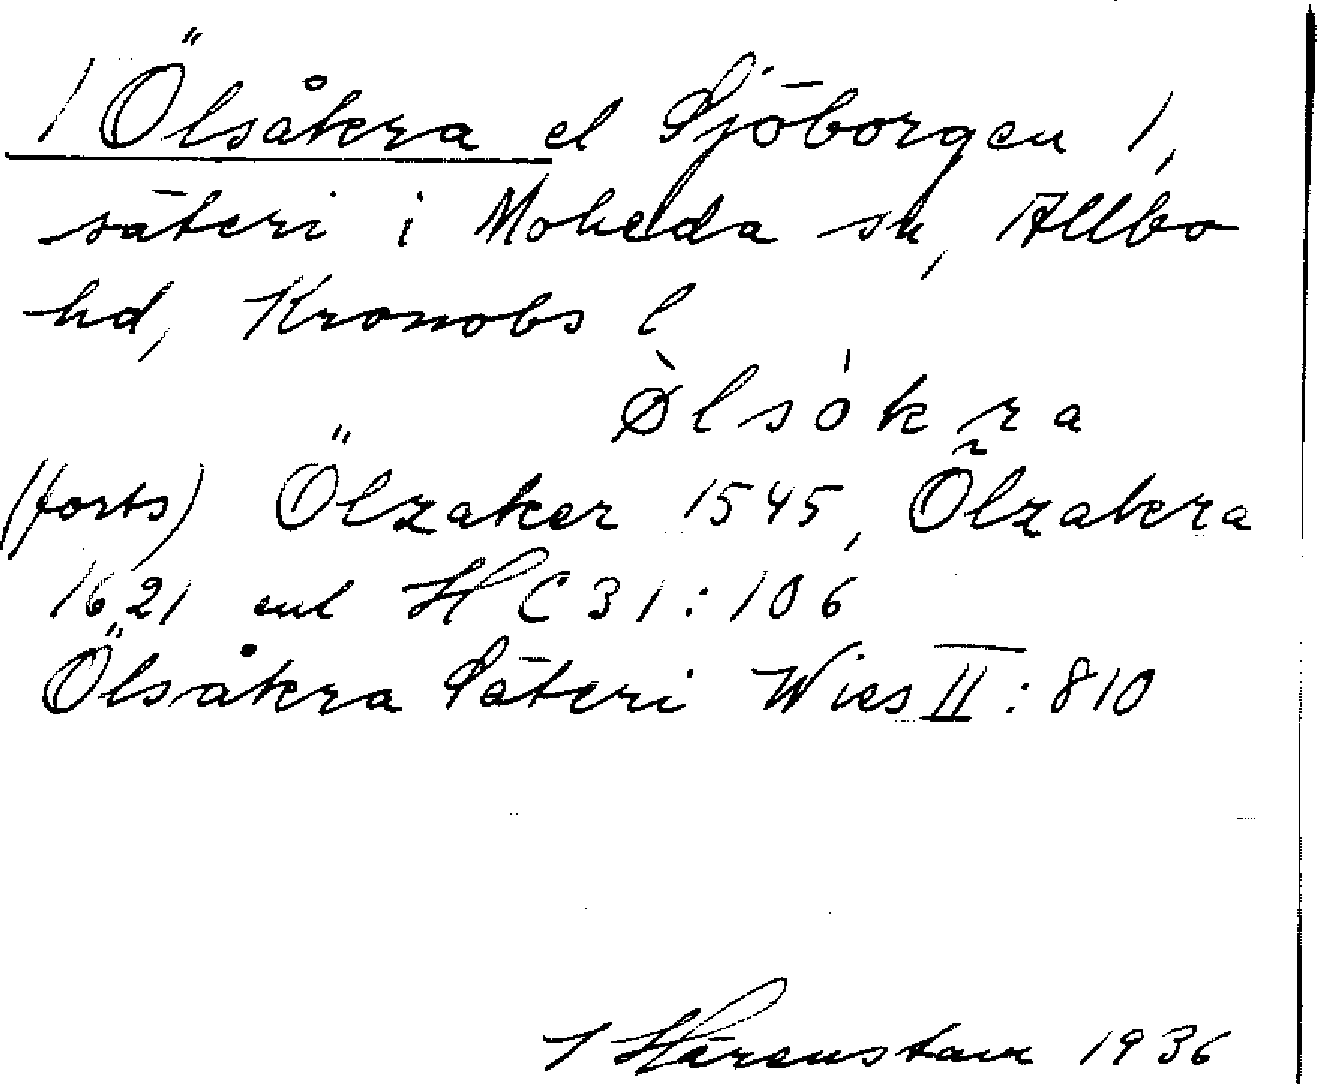 / Ölsåkra el Sjöborgen /,
säteri i Moheda sn, Allbo
hd, Kronobs l
Ø̀lsȯ́kra
(forts) Ölzaker 1545, Õlzakra
1621 enl HC 31:106
Ölsåkra Säteri Wies II:810
Härenstam 1936